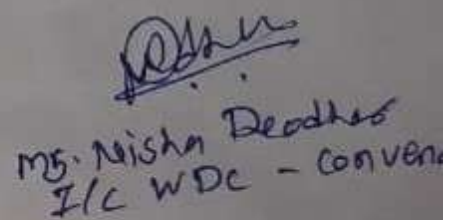 Ms. Nisha Deodhar
I/C WDC - Conven